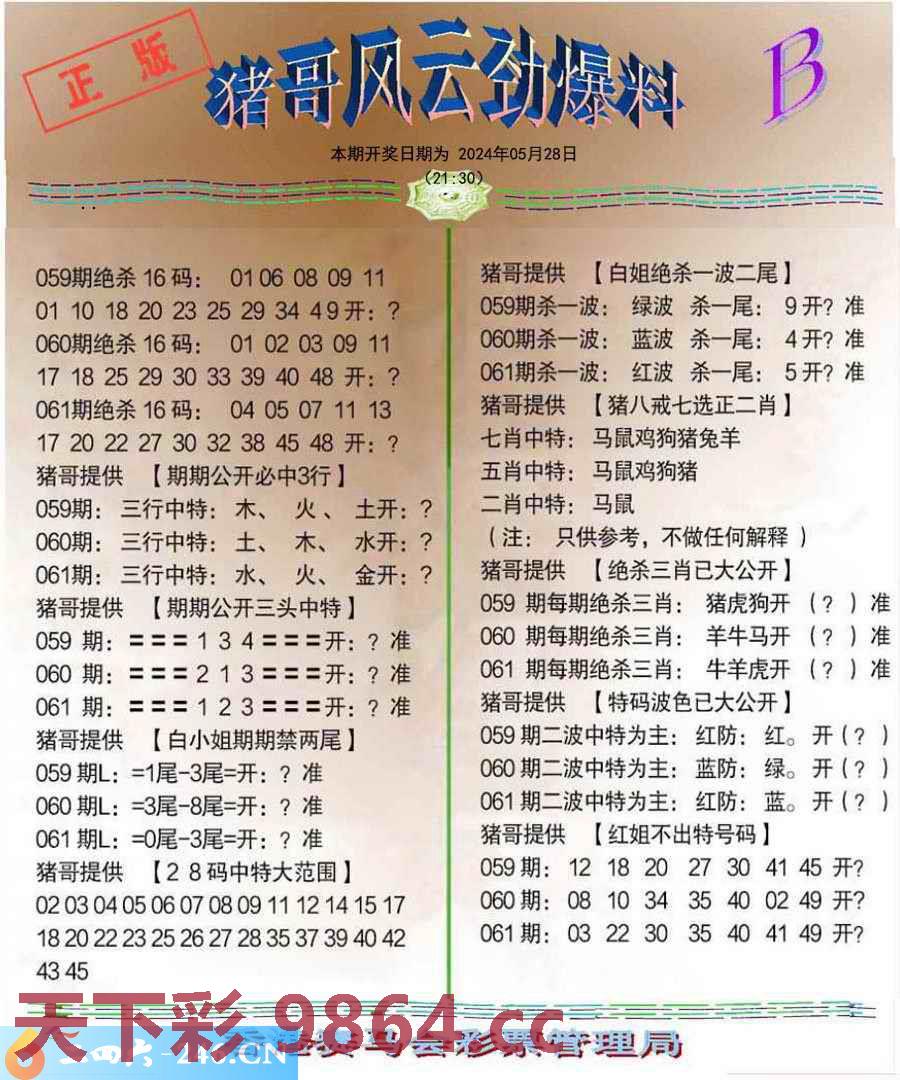 正版
猪哥风云劲爆料
B
本期开奖日期为 2024年05月28日
(21:30)
059期绝杀16码： 01 06 08 09 11
01 10 18 20 23 25 29 34 49开：?
060期绝杀16码： 01 02 03 09 11
17 18 25 29 30 33 39 40 48 开：?
061期绝杀16码： 04 05 07 11 13
17 20 22 27 30 32 38 45 48 开：?
猪哥提供 【期期公开必中3行】
059期： 三行中特：木、 火、 土开：?
060期： 三行中特：土、 木、 水开：?
061期： 三行中特：水、 火、 金开：?
猪哥提供 【期期公开三头中特】
059 期：===134===开：? 准
060 期：===213===开：? 准
061 期：===123===开：? 准
猪哥提供 【白小姐期期禁两尾】
059期L：=1尾-3尾=开：? 准
060期L：=3尾-8尾=开：? 准
061期L：=0尾-3尾=开：? 准
猪哥提供 【28码中特大范围】
02 03 04 05 06 07 08 09 11 12 14 15 17
18 20 22 23 25 26 27 28 35 37 39 40 42
43 45
猪哥提供 【白姐绝杀一波二尾】
059期杀一波： 绿波 杀一尾： 9开? 准
060期杀一波： 蓝波 杀一尾： 4开? 准
061期杀一波： 红波 杀一尾： 5开? 准
猪哥提供 【猪八戒七选正二肖】
七肖中特：马鼠鸡狗猪兔羊
五肖中特：马鼠鸡狗猪
二肖中特：马鼠
（注： 只供参考，不做任何解释）
猪哥提供 【绝杀三肖已大公开】
059 期每期绝杀三肖： 猪虎狗开 （?）准
060 期每期绝杀三肖： 羊牛马开 （?）准
061 期每期绝杀三肖： 牛羊虎开 （?）准
猪哥提供 【特码波色已大公开】
059期二波中特为主：红防：红。开（?）
060期二波中特为主：蓝防：绿。开（?）
061期二波中特为主：红防：蓝。开（?）
猪哥提供 【红姐不出特号码】
059期： 12 18 20 27 30 41 45 开?
060期： 08 10 34 35 40 02 49 开?
061期： 03 22 30 35 40 41 49 开?
天下彩.9864.cc
二四六-246.CN
赛马会彩票管理局